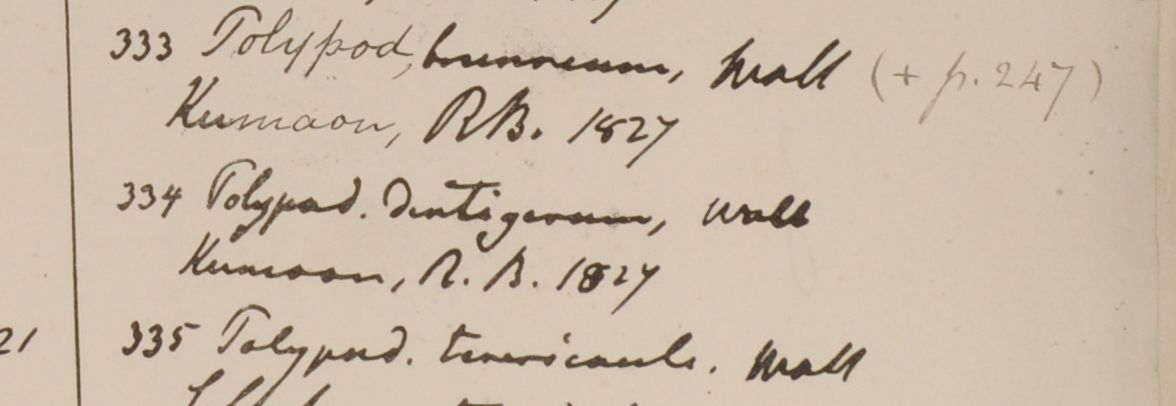 333 Polypod, brunneum, Wall (+ p. 247)
Kumaon, RB. 1827
334 Polypod. dentigerum, Wall
Kumaon, R. B. 1827
21 335 Polypod. tenericaule. Wall